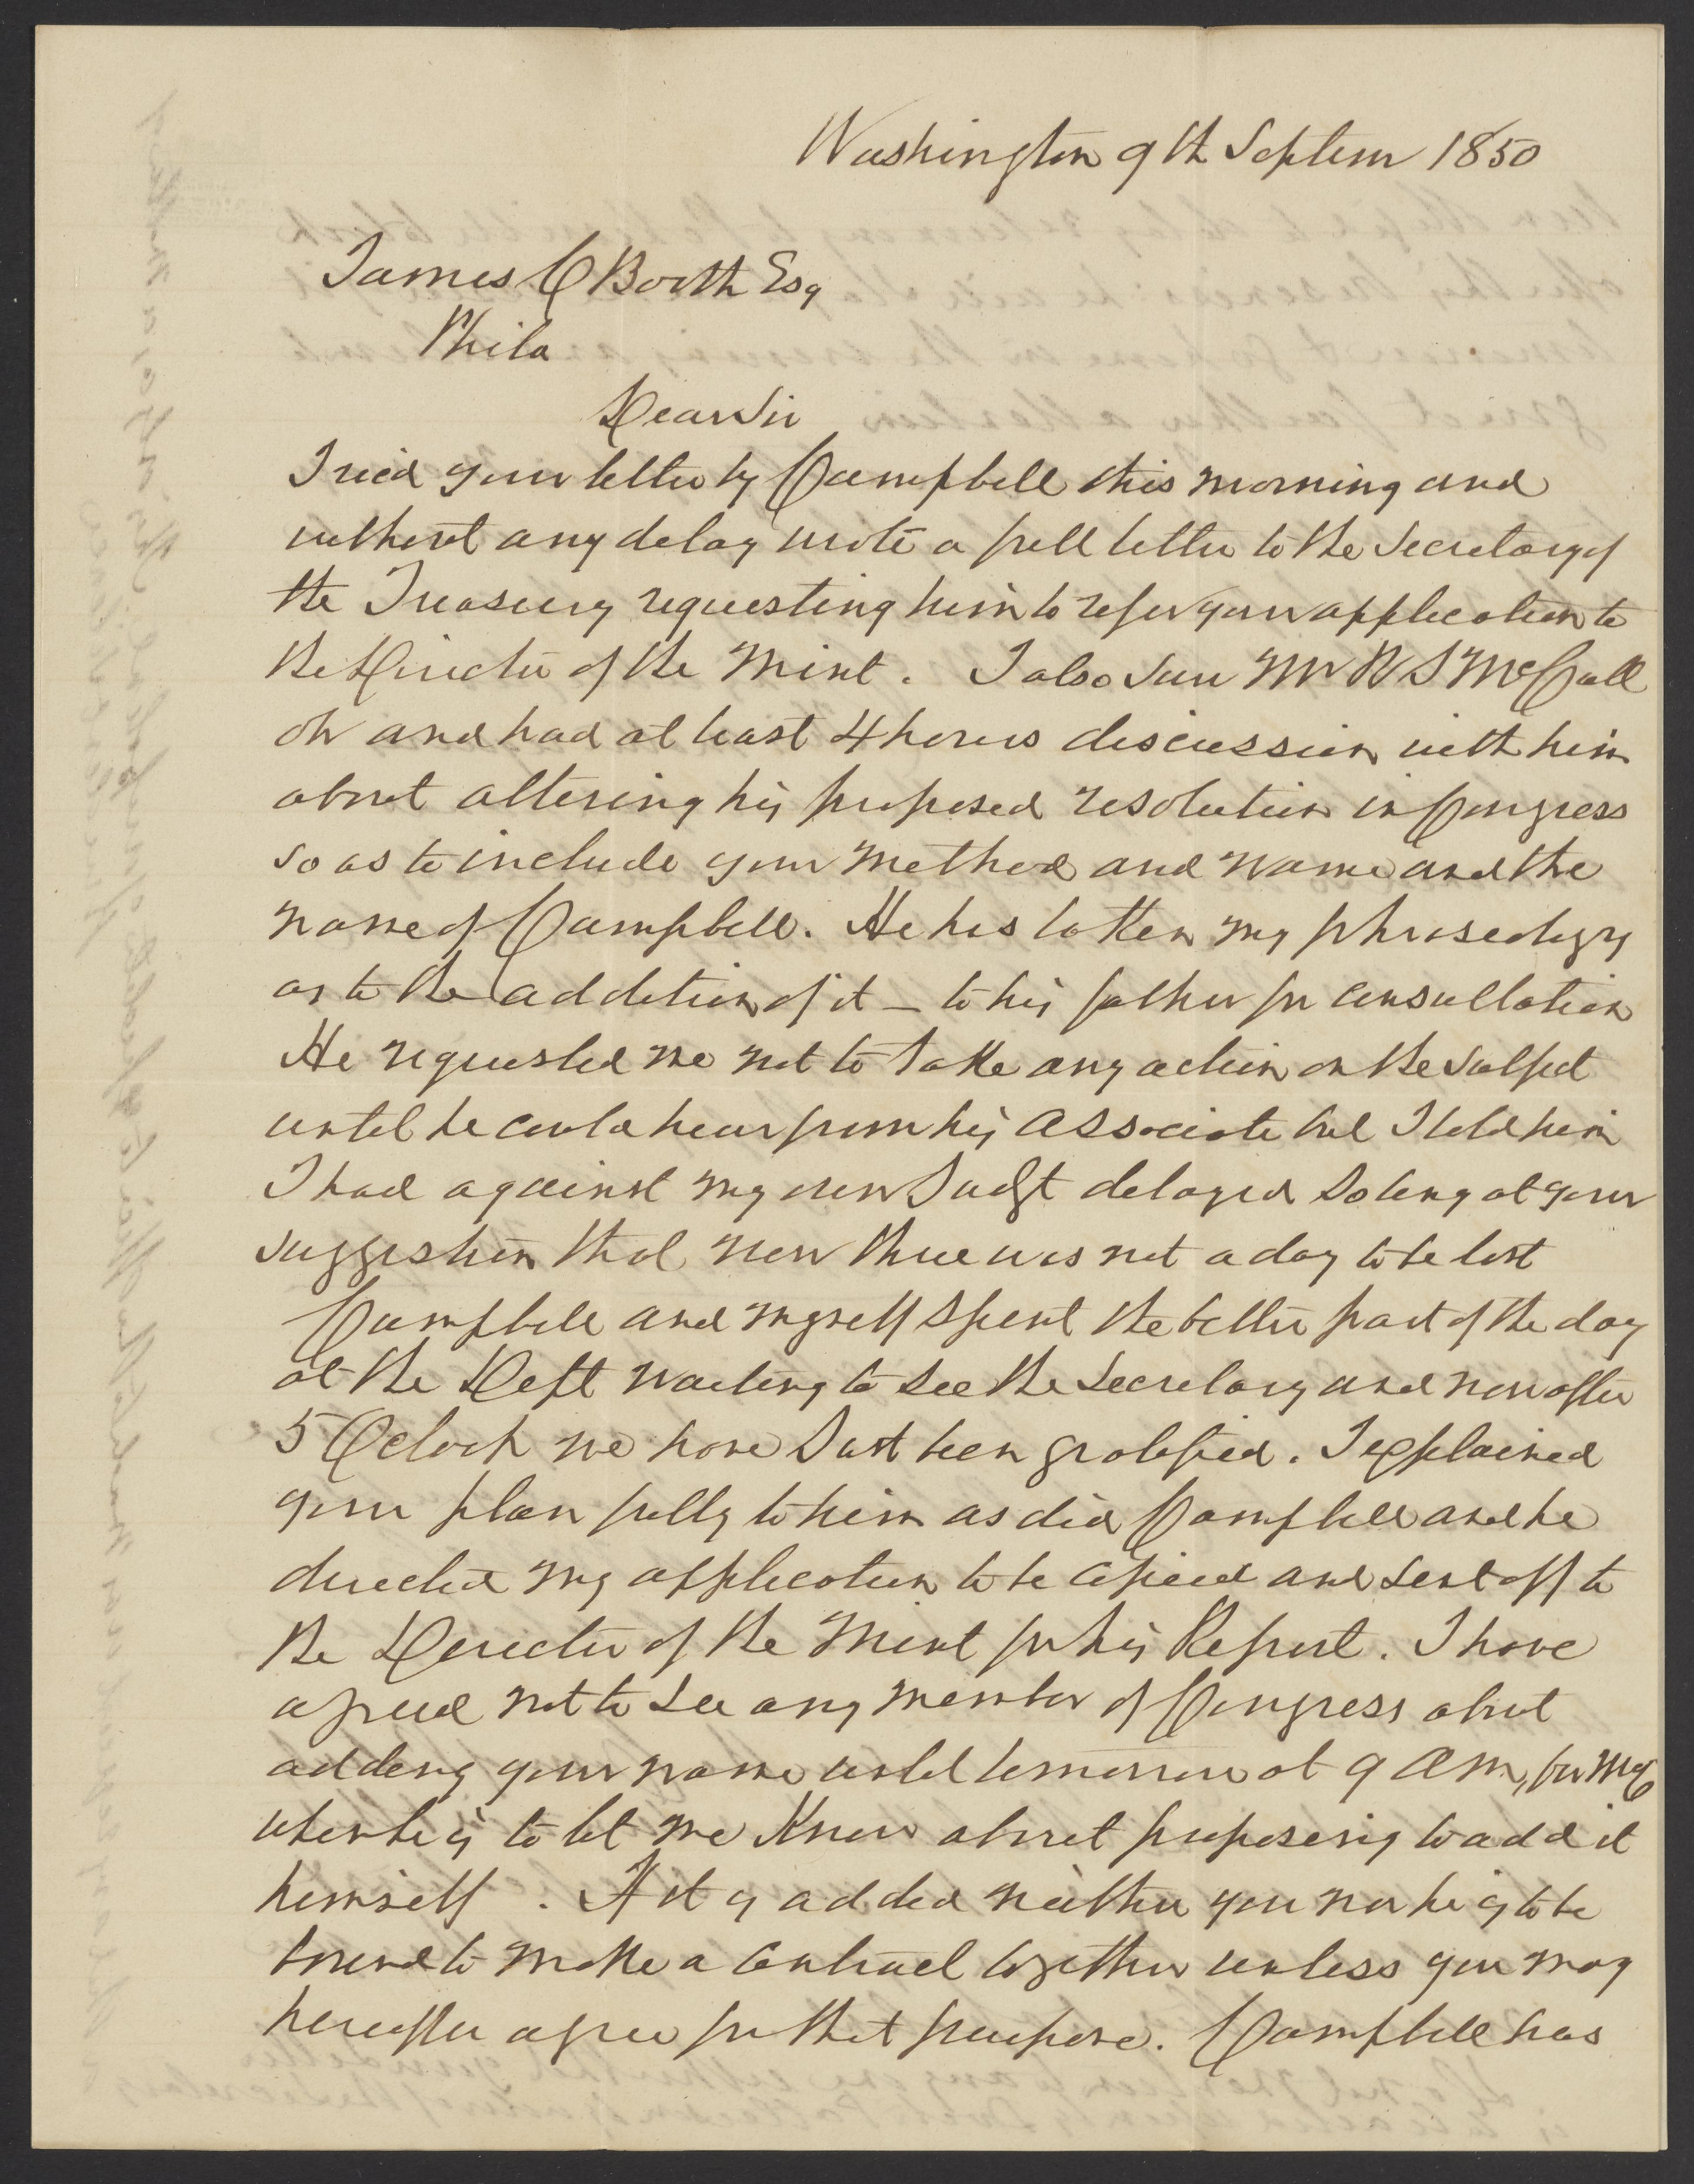 Washington 9th Septem 1850
James C Booth Esq
Phila
Dear Sir
I recd your letter by Campbell this morning and
without any delay wrote a full letter to the Secretary of
the Treasury requesting him to refer your application to
the Director of the Mint. I also saw Mr R S McCall
oh and had at least 4 hours discussion with him
about altering his proposed resolution in Congress
so as to include your method and name and the
name of Campbell. He has taken my phraseology
as to the addition of it – to his father for consultation
He requested me not to take any action on the subject
until he could hear from his associate but I told him
I had against my own Judgt delayed so long at your
suggestion that now there was not a day to be lost
Campbell and myself spent the better part of the day
at the Dept waiting to see the Secretary and now after
5 Oclock we have Just been gratified. I explained
your plan fully to him as did Campbell and he
directed my application to be copied and sent off to
the Director of the Mint for his Report. I have
agreed not to see any member of Congress about
adding your name until tomorrow at 9 AM, for McC
when he is to let me know about proposing to add it
himself. If it is added neither you nor he is to be
bound to make a contract together unless you may
hereafter agree for that purpose. Campbell has